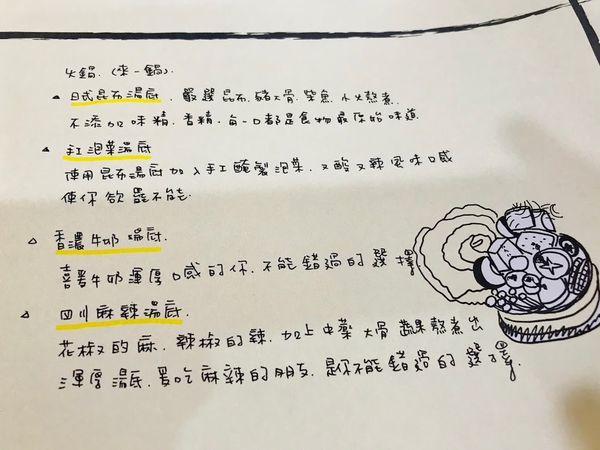 火鍋. (來一鍋).
▲ 日式昆布湯底. 嚴選昆布, 豬大骨, 柴魚, 小火熬煮.
不添加味精, 香精, 每一口都是食物最原始味道.
▲ 紅泡菜湯底
使用昆布湯底加入手工醃製泡菜. 又酸又辣風味口感
使你欲罷不能.
△ 香濃牛奶湯底.
喜愛牛奶渾厚口感的你. 不能錯過的選擇
△ 四川麻辣湯底.
花椒的麻. 辣椒的辣. 加上中藥大骨蔬果熬煮出
渾厚湯底. 愛吃麻辣的朋友. 是你不能錯過的選擇.